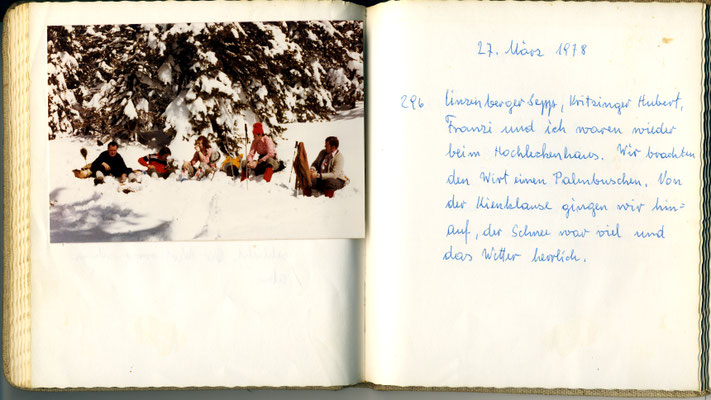 27. März 1978
296 Linzenberger Sepp, Kritzinger Hubert,
Franzi und ich waren wieder
beim Hochleckenhaus. Wir brachten
den Wirt einen Palmbuschen. Von
der Kienklause gingen wir hin=
auf, der Schnee war viel und
das Wetter herrlich.